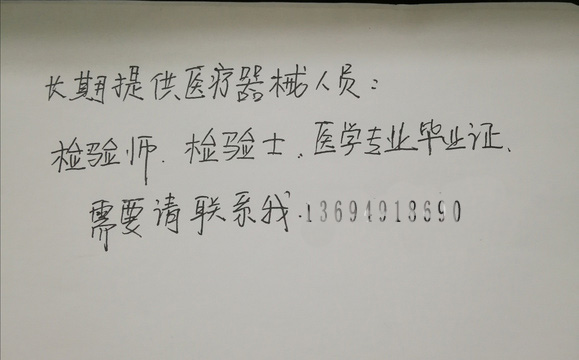 长期提供医疗器械人员：
检验师、检验士、医学专业毕业证、
需要请联系我.13694918690